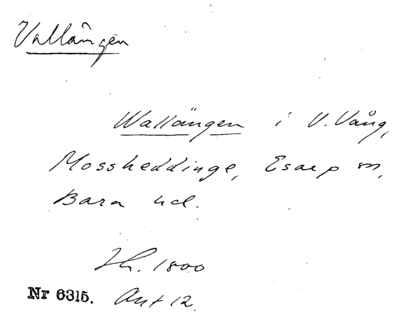 Vallängen
Wallängen i V. Vång,
Mossheddinge, Esarp sn,
Bara hd.
Sk. 1800
Nr 6315. Akt 12.